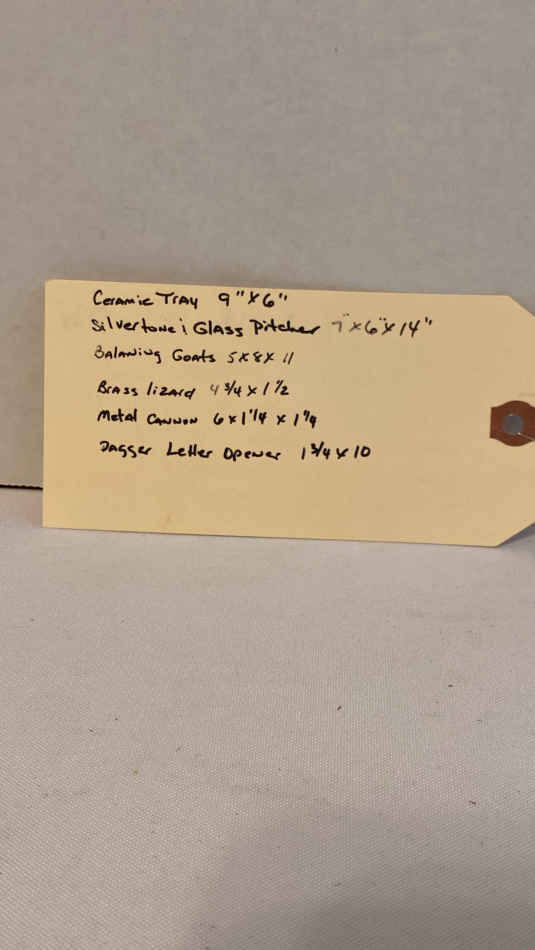 Ceramic Tray 9" x 6"
Silvertone i Glass Pitcher 7" x 6" x 14"
Balaning Goats 5 x 8 x 11
Brass lizard 4 3/4 x 1 1/2
Metal Cannon 6 x 1 1/4 x 1 1/4
Dagger Letter Opener 1 3/4 x 10